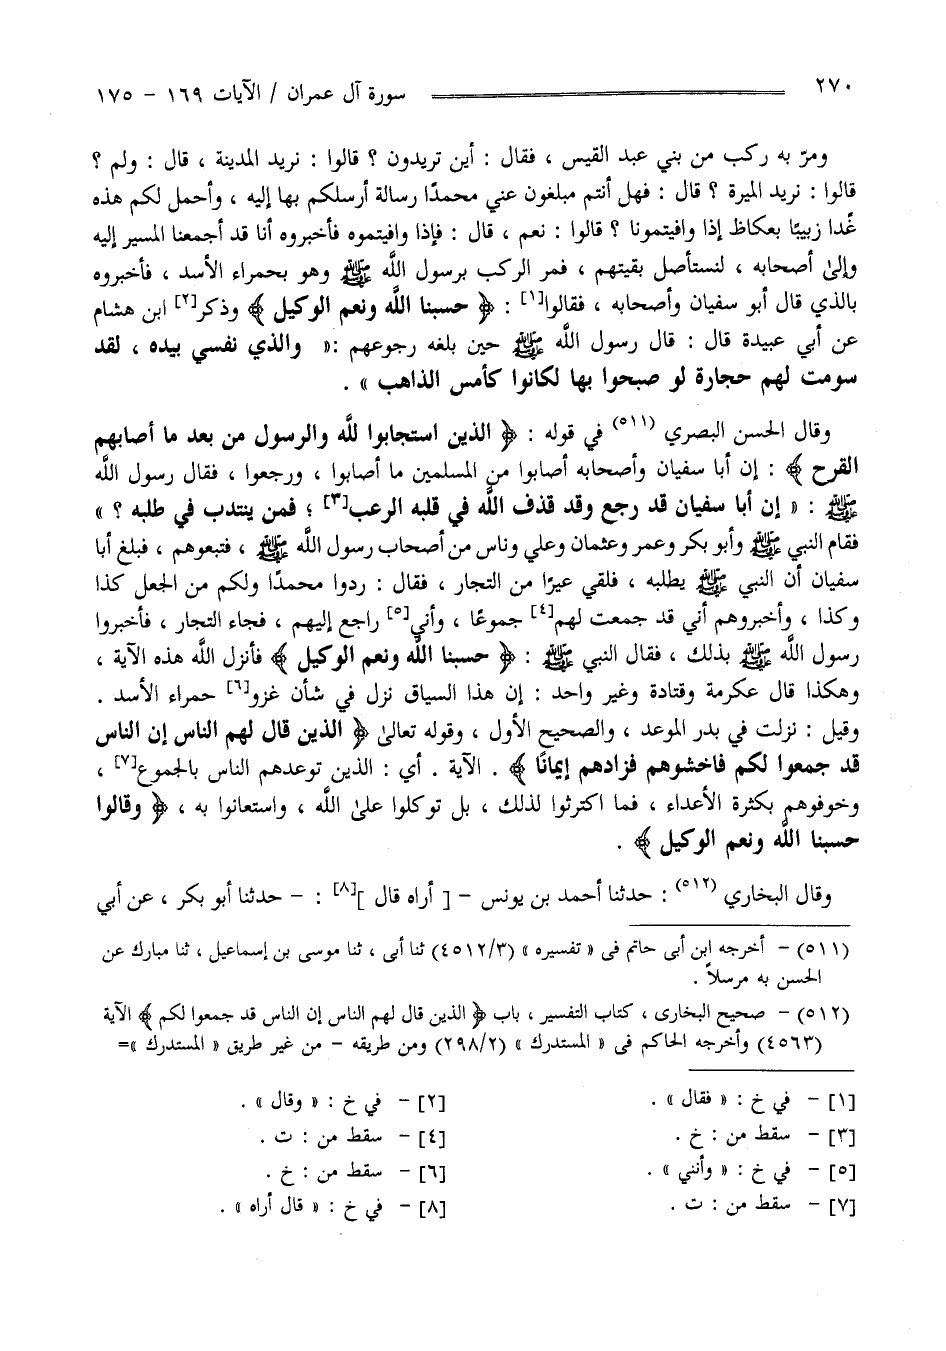 ٢٧٠ سورة آل عمران / الآيات ١٦٩ - ١٧٥
ومرّ به ركب من بني عبد القيس ، فقال : أين تريدون ؟ قالوا : نريد المدينة ، قال : ولم ؟
قالوا : نريد الميرة ؟ قال : فهل أنتم مبلغون عني محمدًا رسالة أرسلكم بها إليه ، وأحمل لكم هذه
غدا زبيبًا بعكاظ إذا وافيتمونا ؟ قالوا : نعم ، قال : فإذا وافيتموه فأخبروه أنا قد أجمعنا المسير إليه
وإلىٰ أصحابه ، لنستأصل بقيتهم ، فمر الركب برسول اللَّه ﷺ وهو بحمراء الأسد ، فأخبروه
بالذي قال أبو سفيان وأصحابه ، فقالوا[١] : ﴿ حسبنا اللَّه ونعم الوكيل ﴾ وذكر[٢] ابن هشام
عن أبي عبيدة قال : قال رسول اللَّه ﷺ حين بلغه رجوعهم :« والذي نفسي بيده ، لقد
سومت لهم حجارة لو صبحوا بها لكانوا كأمس الذاهب » .
وقال الحسن البصري (٥١١) في قوله : ﴿ الذين استجابوا للَّه والرسول من بعد ما أصابهم
القرح ﴾ : إن أبا سفيان وأصحابه أصابوا من المسلمين ما أصابوا ، ورجعوا ، فقال رسول اللَّه
ﷺ : « إن أبا سفيان قد رجع وقد قذف اللَّه في قلبه الرعب[٣] ؛ فمن ينتدب في طلبه ؟ »
فقام النبي ﷺ وأبو بكر وعمر وعثمان وعلي وناس من أصحاب رسول اللَّه ﷺ ، فتبعوهم ، فبلغ أبا
سفيان أن النبي ﷺ يطلبه ، فلقي عيرًا من التجار ، فقال : ردوا محمدًا ولكم من الجعل كذا
وكذا ، وأخبروهم أني قد جمعت لهم[٤] جموعًا ، وأني[٥] راجع إليهم ، فجاء التجار ، فأخبروا
رسول اللَّه ﷺ بذلك ، فقال النبي ﷺ : ﴿ حسبنا اللَّه ونعم الوكيل ﴾ فأنزل اللَّه هذه الآية ،
وهكذا قال عكرمة وقتادة وغير واحد : إن هذا السياق نزل في شأن غزو[٦] حمراء الأسد .
وقيل : نزلت في بدر الموعد ، والصحيح الأول ، وقوله تعالىٰ ﴿ الذين قال لهم الناس إن الناس
قد جمعوا لكم فاخشوهم فزادهم إيمانًا ﴾ . الآية . أي : الذين توعدهم الناس بالجموع[٧] ،
وخوفوهم بكثرة الأعداء ، فما اكترثوا لذلك ، بل توكلوا علىٰ اللَّه ، واستعانوا به ، ﴿ وقالوا
حسبنا اللَّه ونعم الوكيل ﴾ .
وقال البخاري (٥١٢) : حدثنا أحمد بن يونس - [ أراه قال ][٨] : - حدثنا أبو بكر ، عن أبي
(٥١١) - أخرجه ابن أبى حاتم فى « تفسيره » (٤٥١٢/٣) ثنا أبى ، ثنا موسى بن إسماعيل ، ثنا مبارك عن
الحسن به مرسلاً .
(٥١٢) - صحيح البخارى ، كتاب التفسير ، باب ﴿ الذين قال لهم الناس إن الناس قد جمعوا لكم ﴾ الآية
(٤٥٦٣) وأخرجه الحاكم فى « المستدرك » (٢٩٨/٢) ومن طريقه - من غير طريق « المستدرك »=
[١] - في خ : « فقال » . [٢] - في خ : « وقال » .
[٣] - سقط من : خ . [٤] - سقط من : ت .
[٥] - في خ : « وأنني » . [٦] - سقط من : خ .
[٧] - سقط من : ت . [٨] - في خ : « قال أراه » .